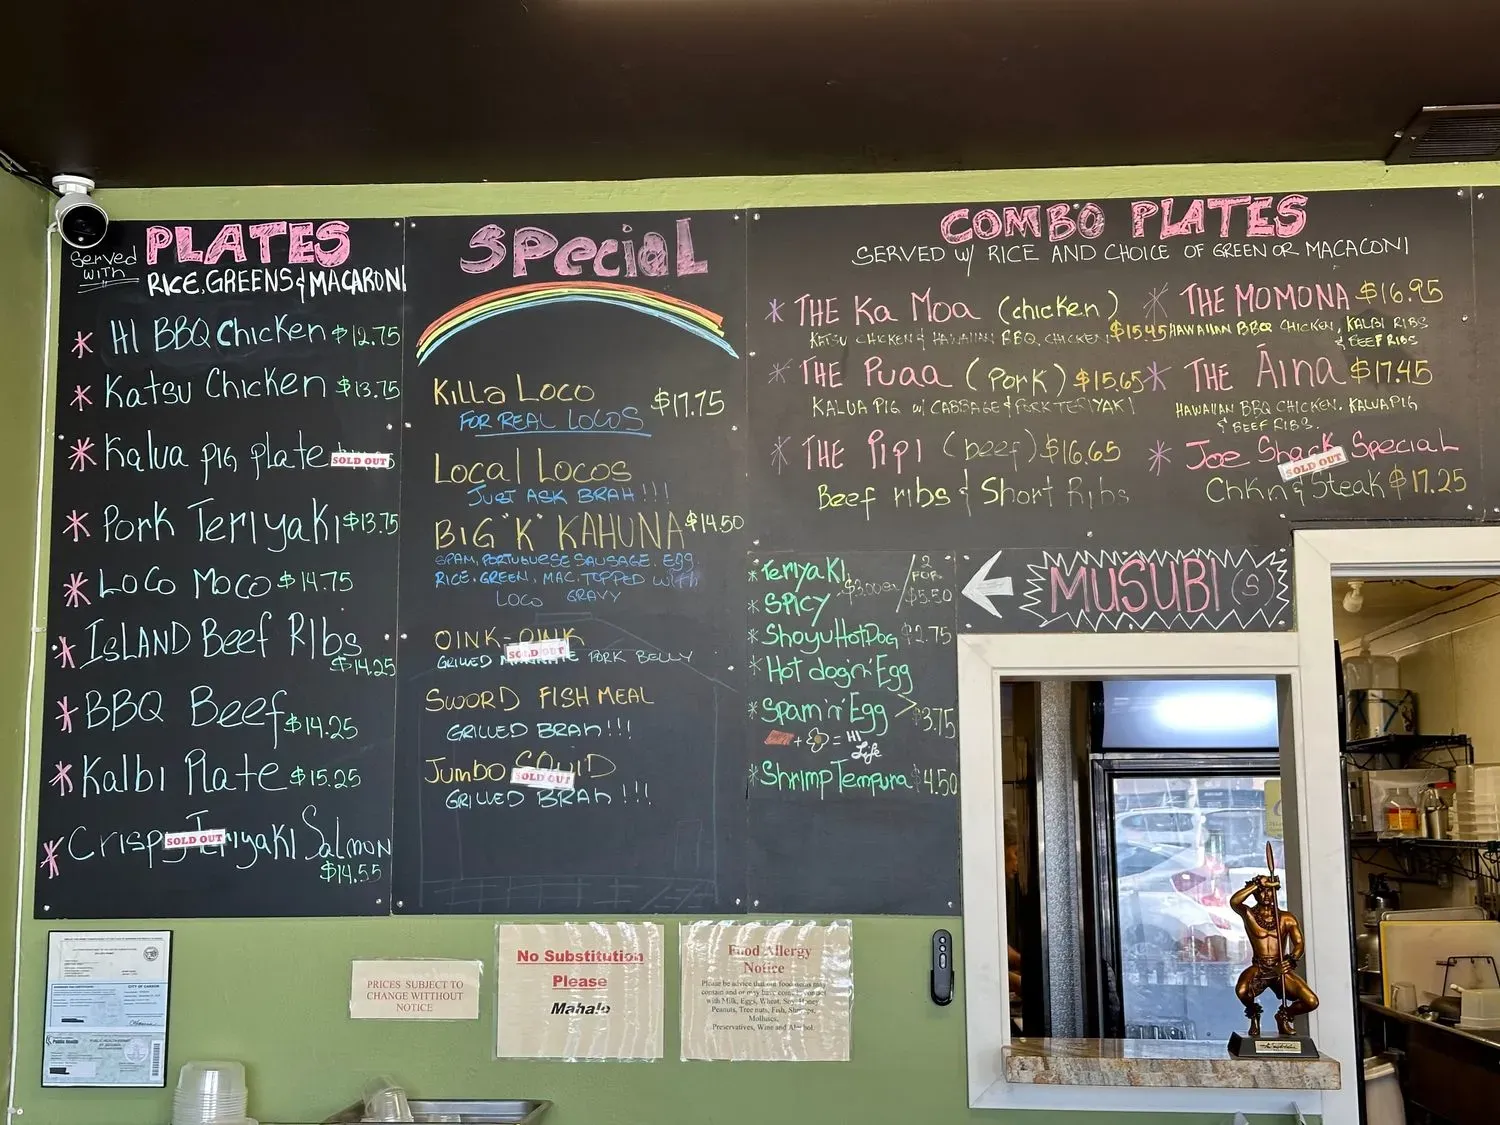 Served
with
PLATES
RICE, GREENS & MACARONI
* HI BBQ Chicken $12.75
* Katsu Chicken $13.75
* Kalua pig plate SOLD OUT
* Pork Teriyaki $13.75
* Loco Moco $14.75
* Island Beef Ribs
$14.25
* BBQ Beef $14.25
* Kalbi Plate $15.25
* Crispy Teriyaki Salmon
SOLD OUT
$14.55
Special
Killa Loco $17.75
FOR REAL LOCOS
Local Locos
JUST ASK BRAH!!!
BIG "K" KAHUNA $14.50
SPAM, PORTUGUESE SAUSAGE, EGG
RICE, GREEN, MAC, TOPPED WITH
LOCO GRAVY
OINK-OINK
SOLD OUT
GRILLED PORK BELLY
SWORD FISH MEAL
GRILLED BRAH!!!
Jumbo SQUID
SOLD OUT
GRILLED BRAH!!!
COMBO PLATES
SERVED W/ RICE AND CHOICE OF GREEN OR MACACONI
* THE Ka Moa (chicken)
KATSU CHICKEN & HAWAIIAN BBQ, CHICKEN $15.45
* THE Puaa (Pork) $15.65
KALUA PIG W/ CABBAGE & PORK TERIYAKI
* THE Pipi (beef) $16.65
Beef ribs & Short Ribs
* THE MOMONA $16.95
HAWAIIAN BBQ CHICKEN, KALBI RIBS
& BEEF RIBS
* THE Áina $17.45
HAWAIIAN BBQ CHICKEN, KALUA PIG
& BEEF RIBS.
* Joe Shack Special
SOLD OUT
Chkn & Steak $17.25
MUSUBI(S)
* Teriyaki
* SPICY
$3.00ea / 2 FOR $5.50
* Shoyu Hot Dog $2.75
* Hot dog n' Egg
* Spam 'n' Egg > $3.75
+ = HI Life
* Shrimp Tempura $4.50
PRICES SUBJECT TO
CHANGE WITTHOUT
NOTICE
No Substitution
Please
Mahalo
Food Allergy
Notice
Please be advice that our food menu may
contain and or may have come in contact
with Milk, Eggs, Wheat, Soy, Honey
Peanuts, Tree nuts, Fish, Shrimps,
Molluscs,
Preservatives, Wine and Alcohol
CITY OF CARSON
Public Health